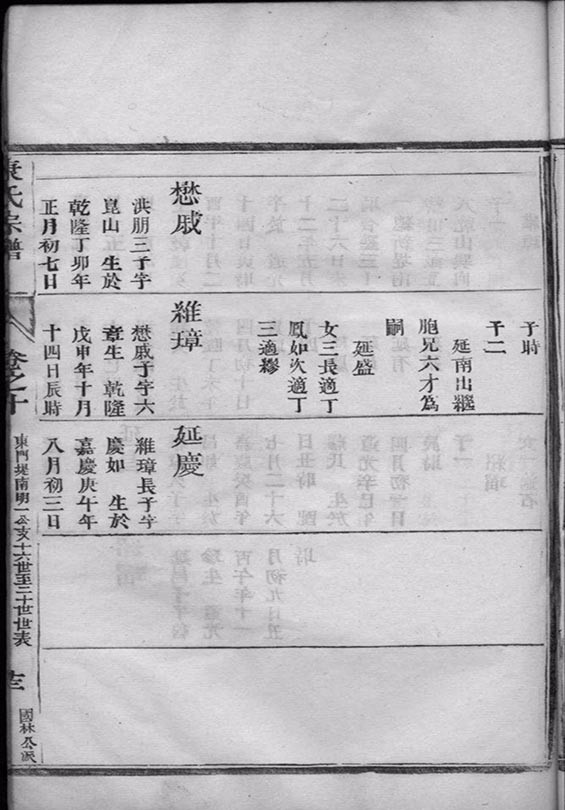 子時
子二
延南出繼
胞兄六才爲
嗣
延盛
女三長適丁
鳳如次適丁
三適繆
懋戚
洪朋三子字
崑山 生於
乾隆丁卯年
正月初七日
維璋
懋戚子字六
章生 乾隆
戊申年十月
十四日辰時
延慶
維璋長子字
慶如 生於
嘉慶庚午年
八月初三日
氏宗譜
卷之十
東門堤南明一公支十六世至二十世世表
國林公派